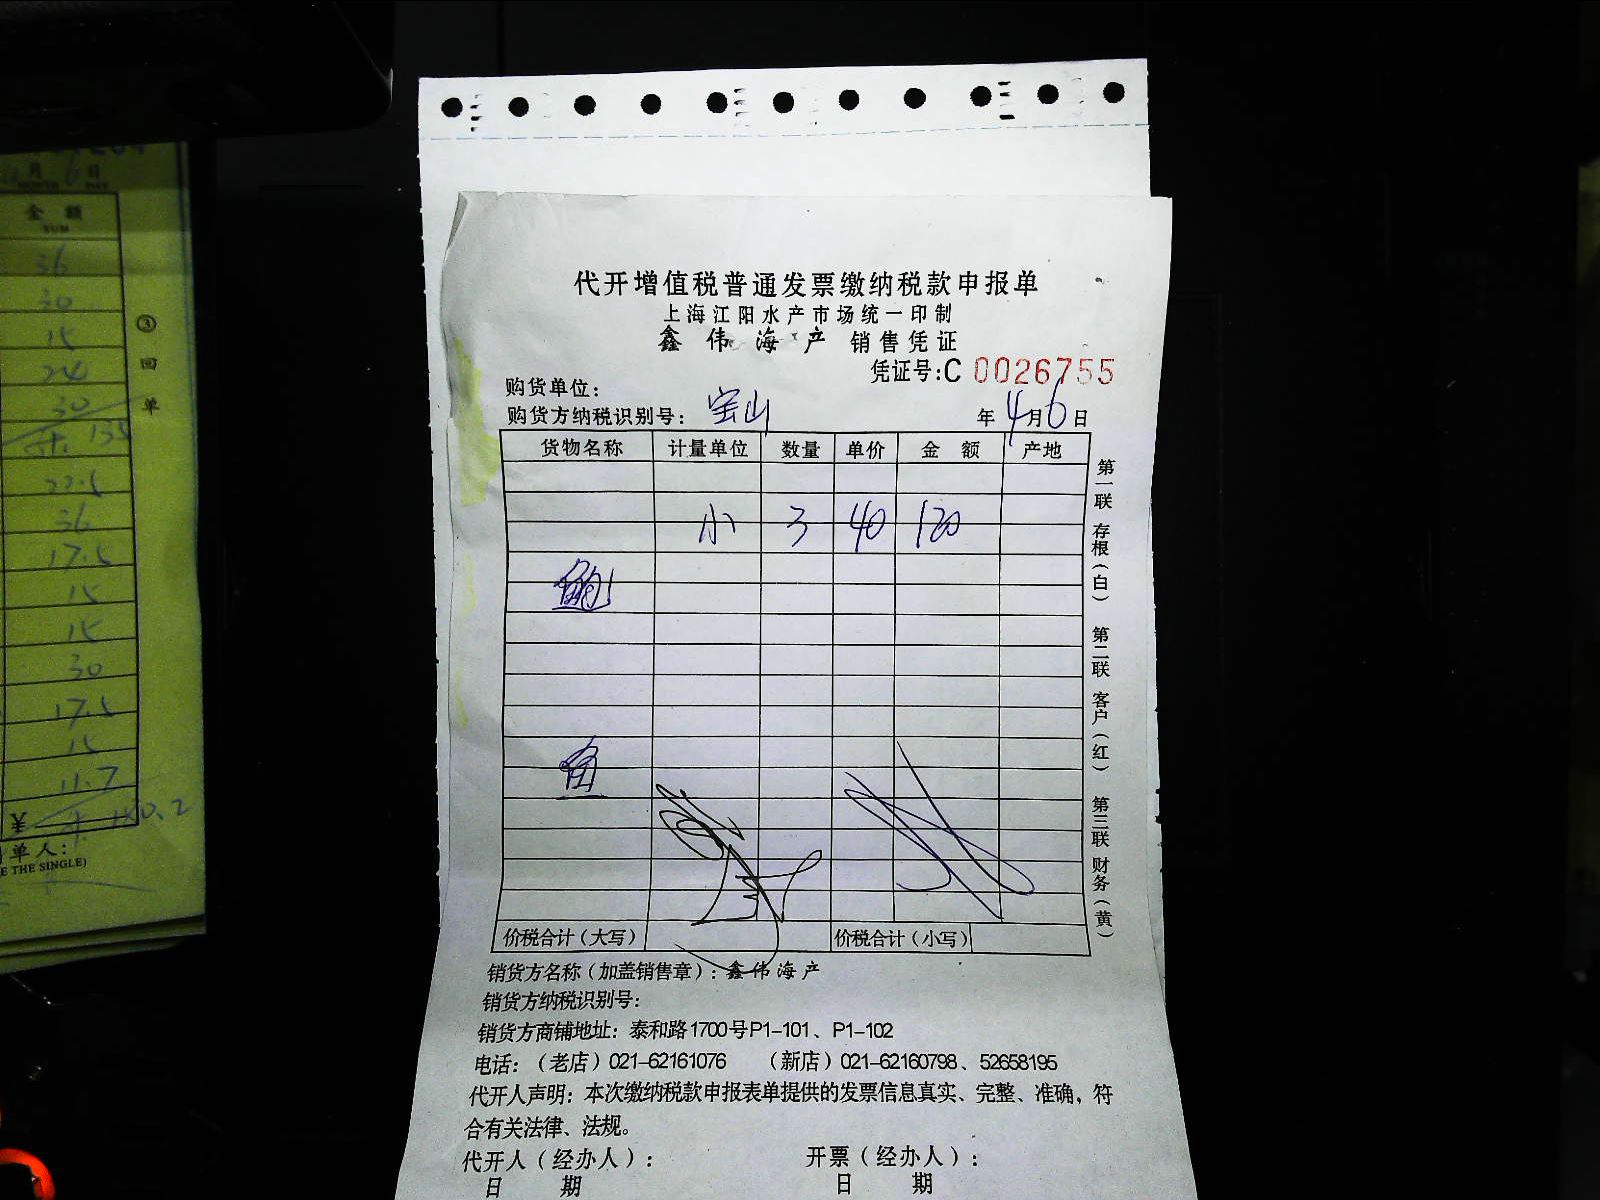 代开增值税普通发票缴纳税款申报单
上海江阳水产市场统一印制
鑫伟海产 销售凭证
凭证号:C 0026755
购货单位:
购货方纳税识别号: 宝山 年 4月6日
货物名称 计量单位 数量 单价 金额 产地
小 3 40 120
鲍
鱼
价税合计(大写) 价税合计(小写)
第一联 存根(白) 第二联 客户(红) 第三联 财务(黄)
销货方名称(加盖销售章):鑫伟海产
销货方纳税识别号:
销货方商铺地址:泰和路1700号P1-101、P1-102
电话:(老店)021-62161076 (新店)021-62160798、52658195
代开人声明:本次缴纳税款申报表单提供的发票信息真实、完整、准确,符
合有关法律、法规。
代开人(经办人): 开票(经办人):
日 期 日 期
月 6 日
MONTH DAY
金 额
SUM
36
30
15
24
30
135
22.5
36
17.5
15
15
30
17.5
15
11.7
¥
单人:
E THE SINGLE)
③
回
单